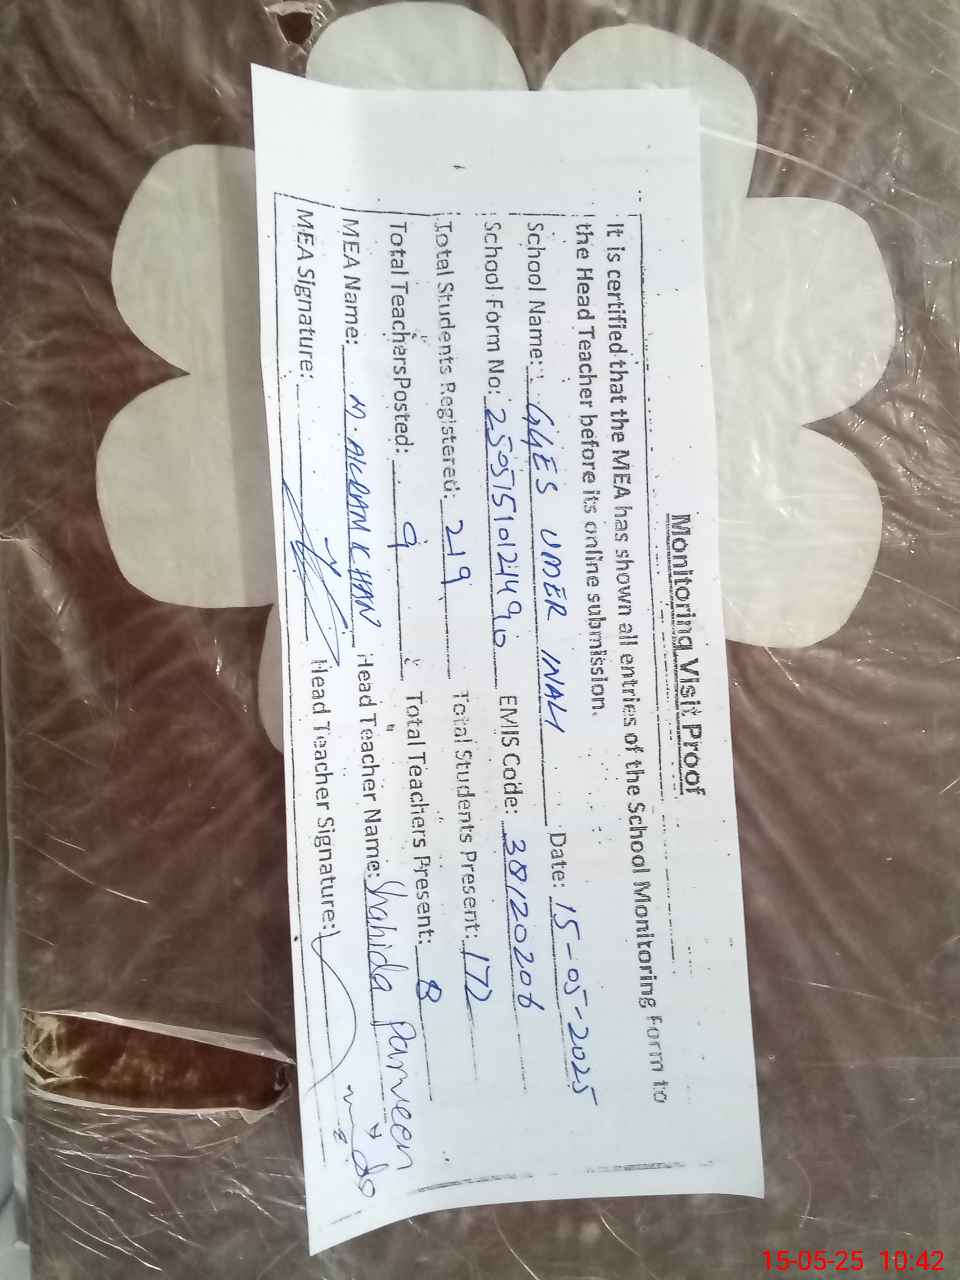 Monitoring Visit Proof
It is certified that the MEA has shown all entries of the School Monitoring Form to
the Head Teacher before its online submission.
School Name: GGES UMER WALI Date: 15-05-2025
School Form No: EMIS Code: 38120206
Total Students Registered: 219 Total Students Present: 172
Total Teachers Posted: 9 Total Teachers Present: 8
MEA Name: M. AKRAM KHAN Head Teacher Name: Shahida Parveen
MEA Signature: Head Teacher Signature:
15-05-25 10:42